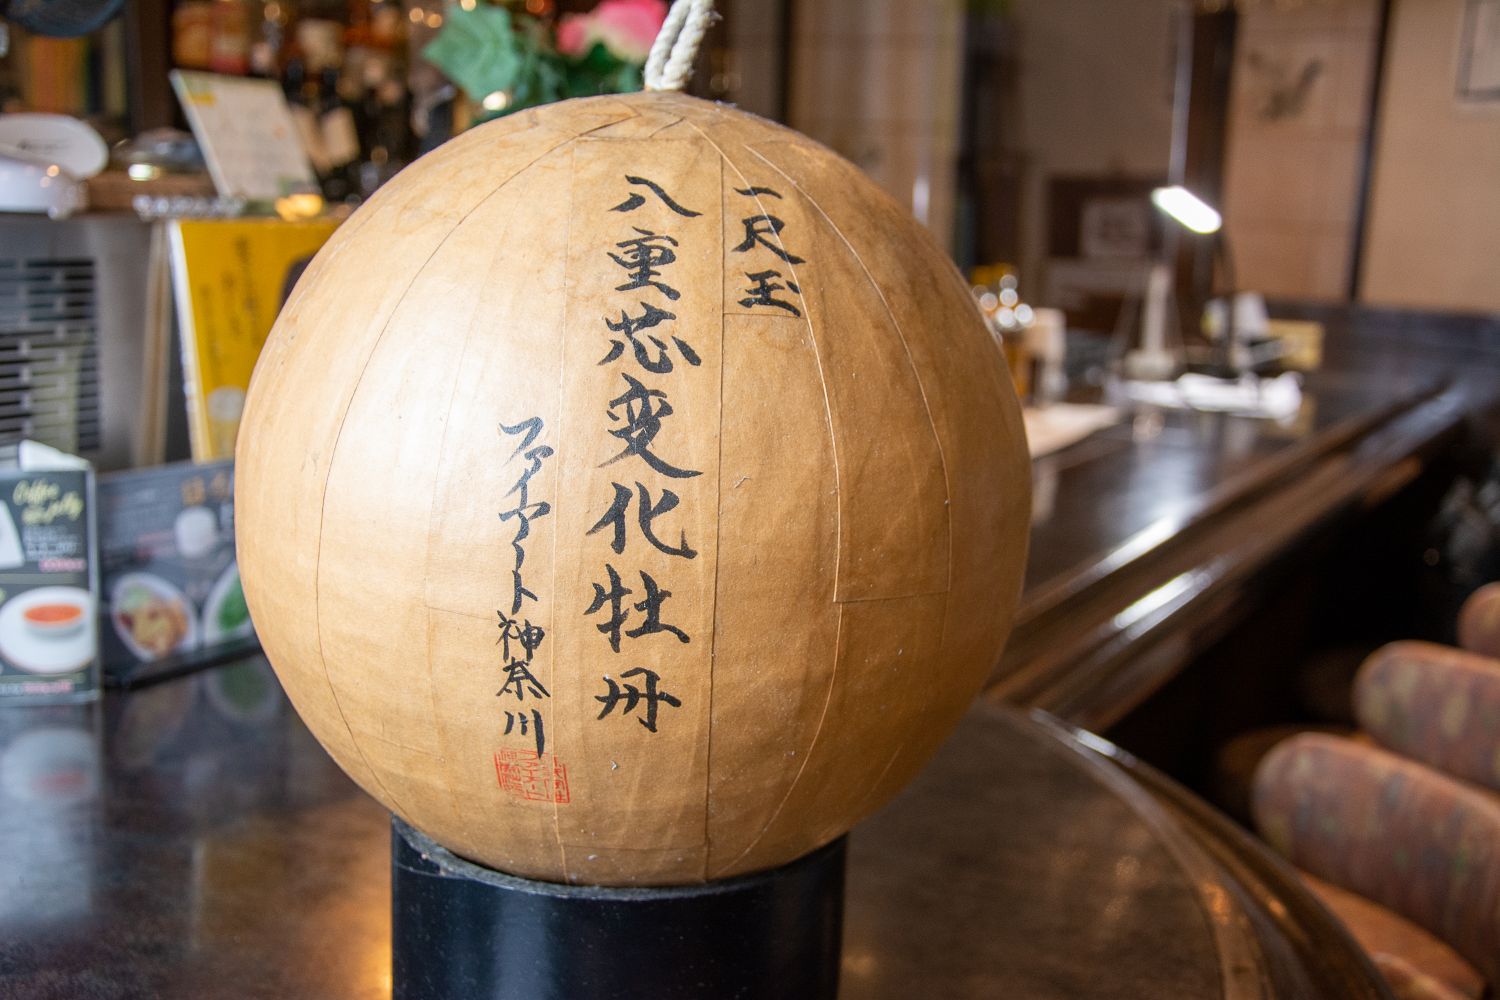 一尺玉
八重芯変化牡丹
ファイヤアート神奈川
Coffee